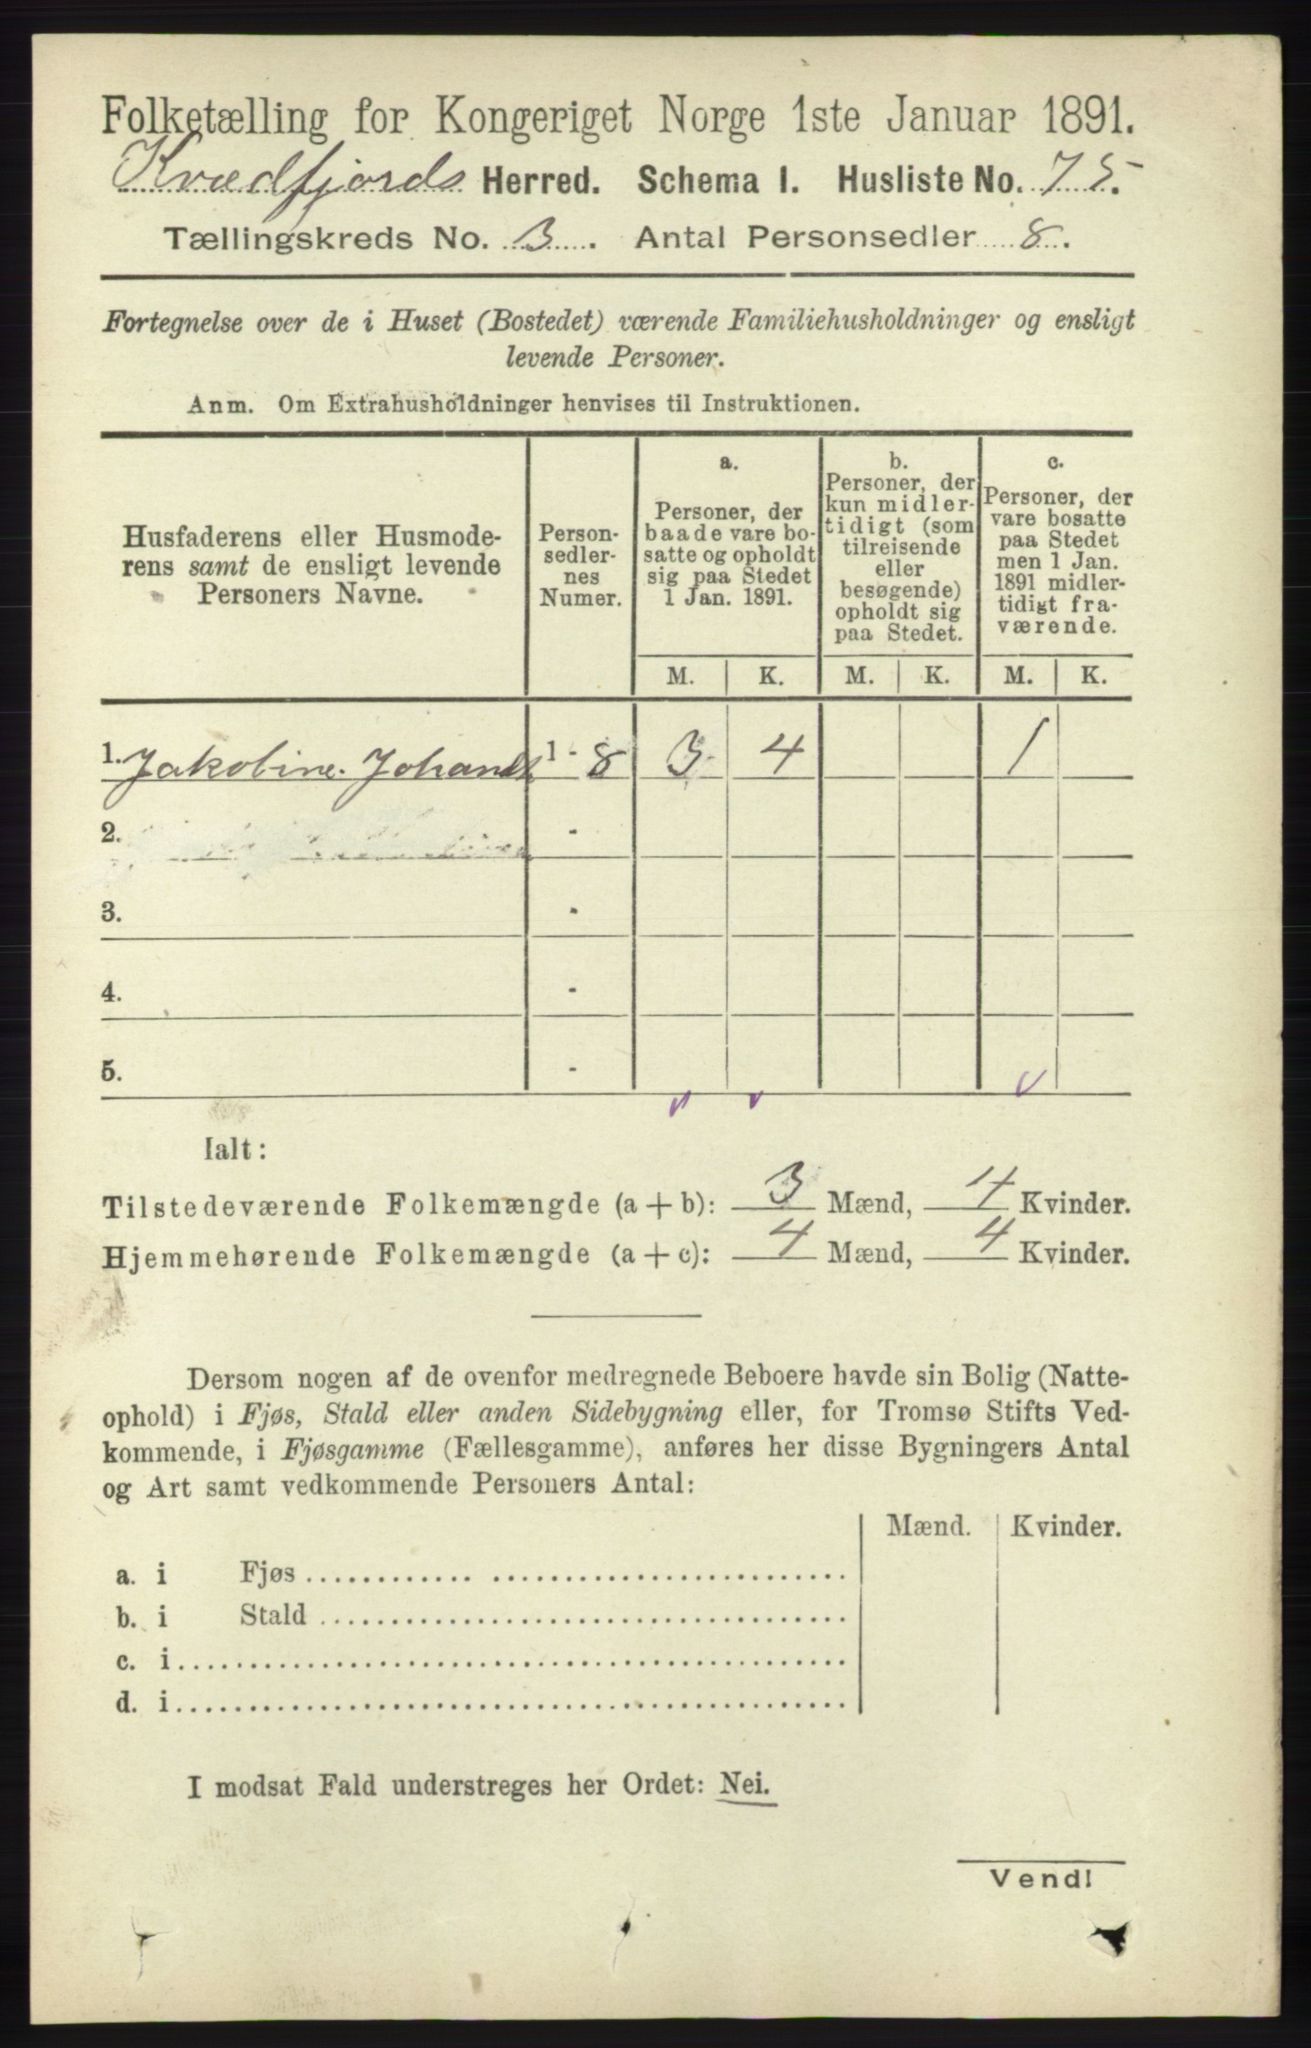 Folketælling for Kongeriget Norge 1ste Januar 1891.
Kvædfjords Herred. Schema I. Husliste No. 75.
Tællingskreds No. 3. Antal Personsedler 8.
Fortegnelse over de i Huset (Bostedet) værende Familiehusholdninger og ensligt
levende Personer.
Anm. Om Extrahusholdninger henvises til Instruktionen.
Husfaderens eller Husmode-
rens samt de ensligt levende
Personers Navne.
Person-
sedler-
nes
Numer.
a.
Personer, der
baade vare bo-
satte og opholdt
sig paa Stedet
1 Jan. 1891.
b.
Personer, der
kun midler-
tidigt (som
tilreisende
eller
besøgende)
opholdt sig
paa Stedet.
c.
Personer, der
vare bosatte
paa Stedet
men 1 Jan.
1891 midler-
tidigt fra-
værende.
M. K. M. K. M. K.
1. Jakobine Johans 1 - 8 3 4 1
2. -
3. -
4. -
5. -
Ialt:
Tilstedeværende Folkemængde (a + b): 3 Mænd, 4 Kvinder.
Hjemmehørende Folkemængde (a + c): 4 Mænd, 4 Kvinder.
Dersom nogen af de ovenfor medregnede Beboere havde sin Bolig (Natte-
ophold) i Fjøs, Stald eller anden Sidebygning eller, for Tromsø Stifts Ved-
kommende, i Fjøsgamme (Fællesgamme), anføres her disse Bygningers Antal
og Art samt vedkommende Personers Antal:
Mænd. Kvinder.
a. i Fjøs
b. i Stald
c. i
d. i
I modsat Fald understreges her Ordet: Nei.
Vend!